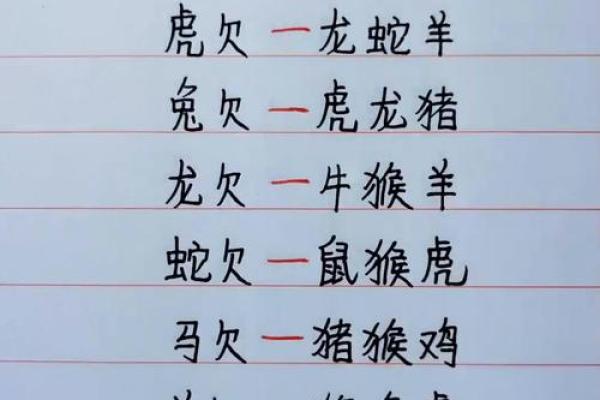 虎欠一龙蛇羊
兔欠一虎龙猪
龙欠一牛猴羊
蛇欠一鼠猴虎
马欠一猪猴鸡